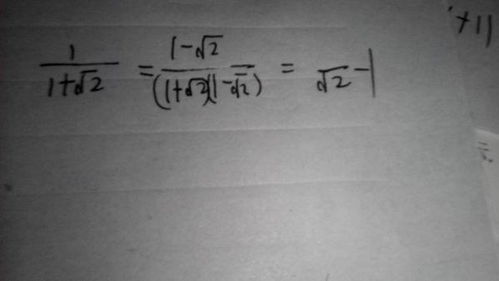 1/(1+√2) = (1-√2)/((1+√2)(1-√2)) = √2-1